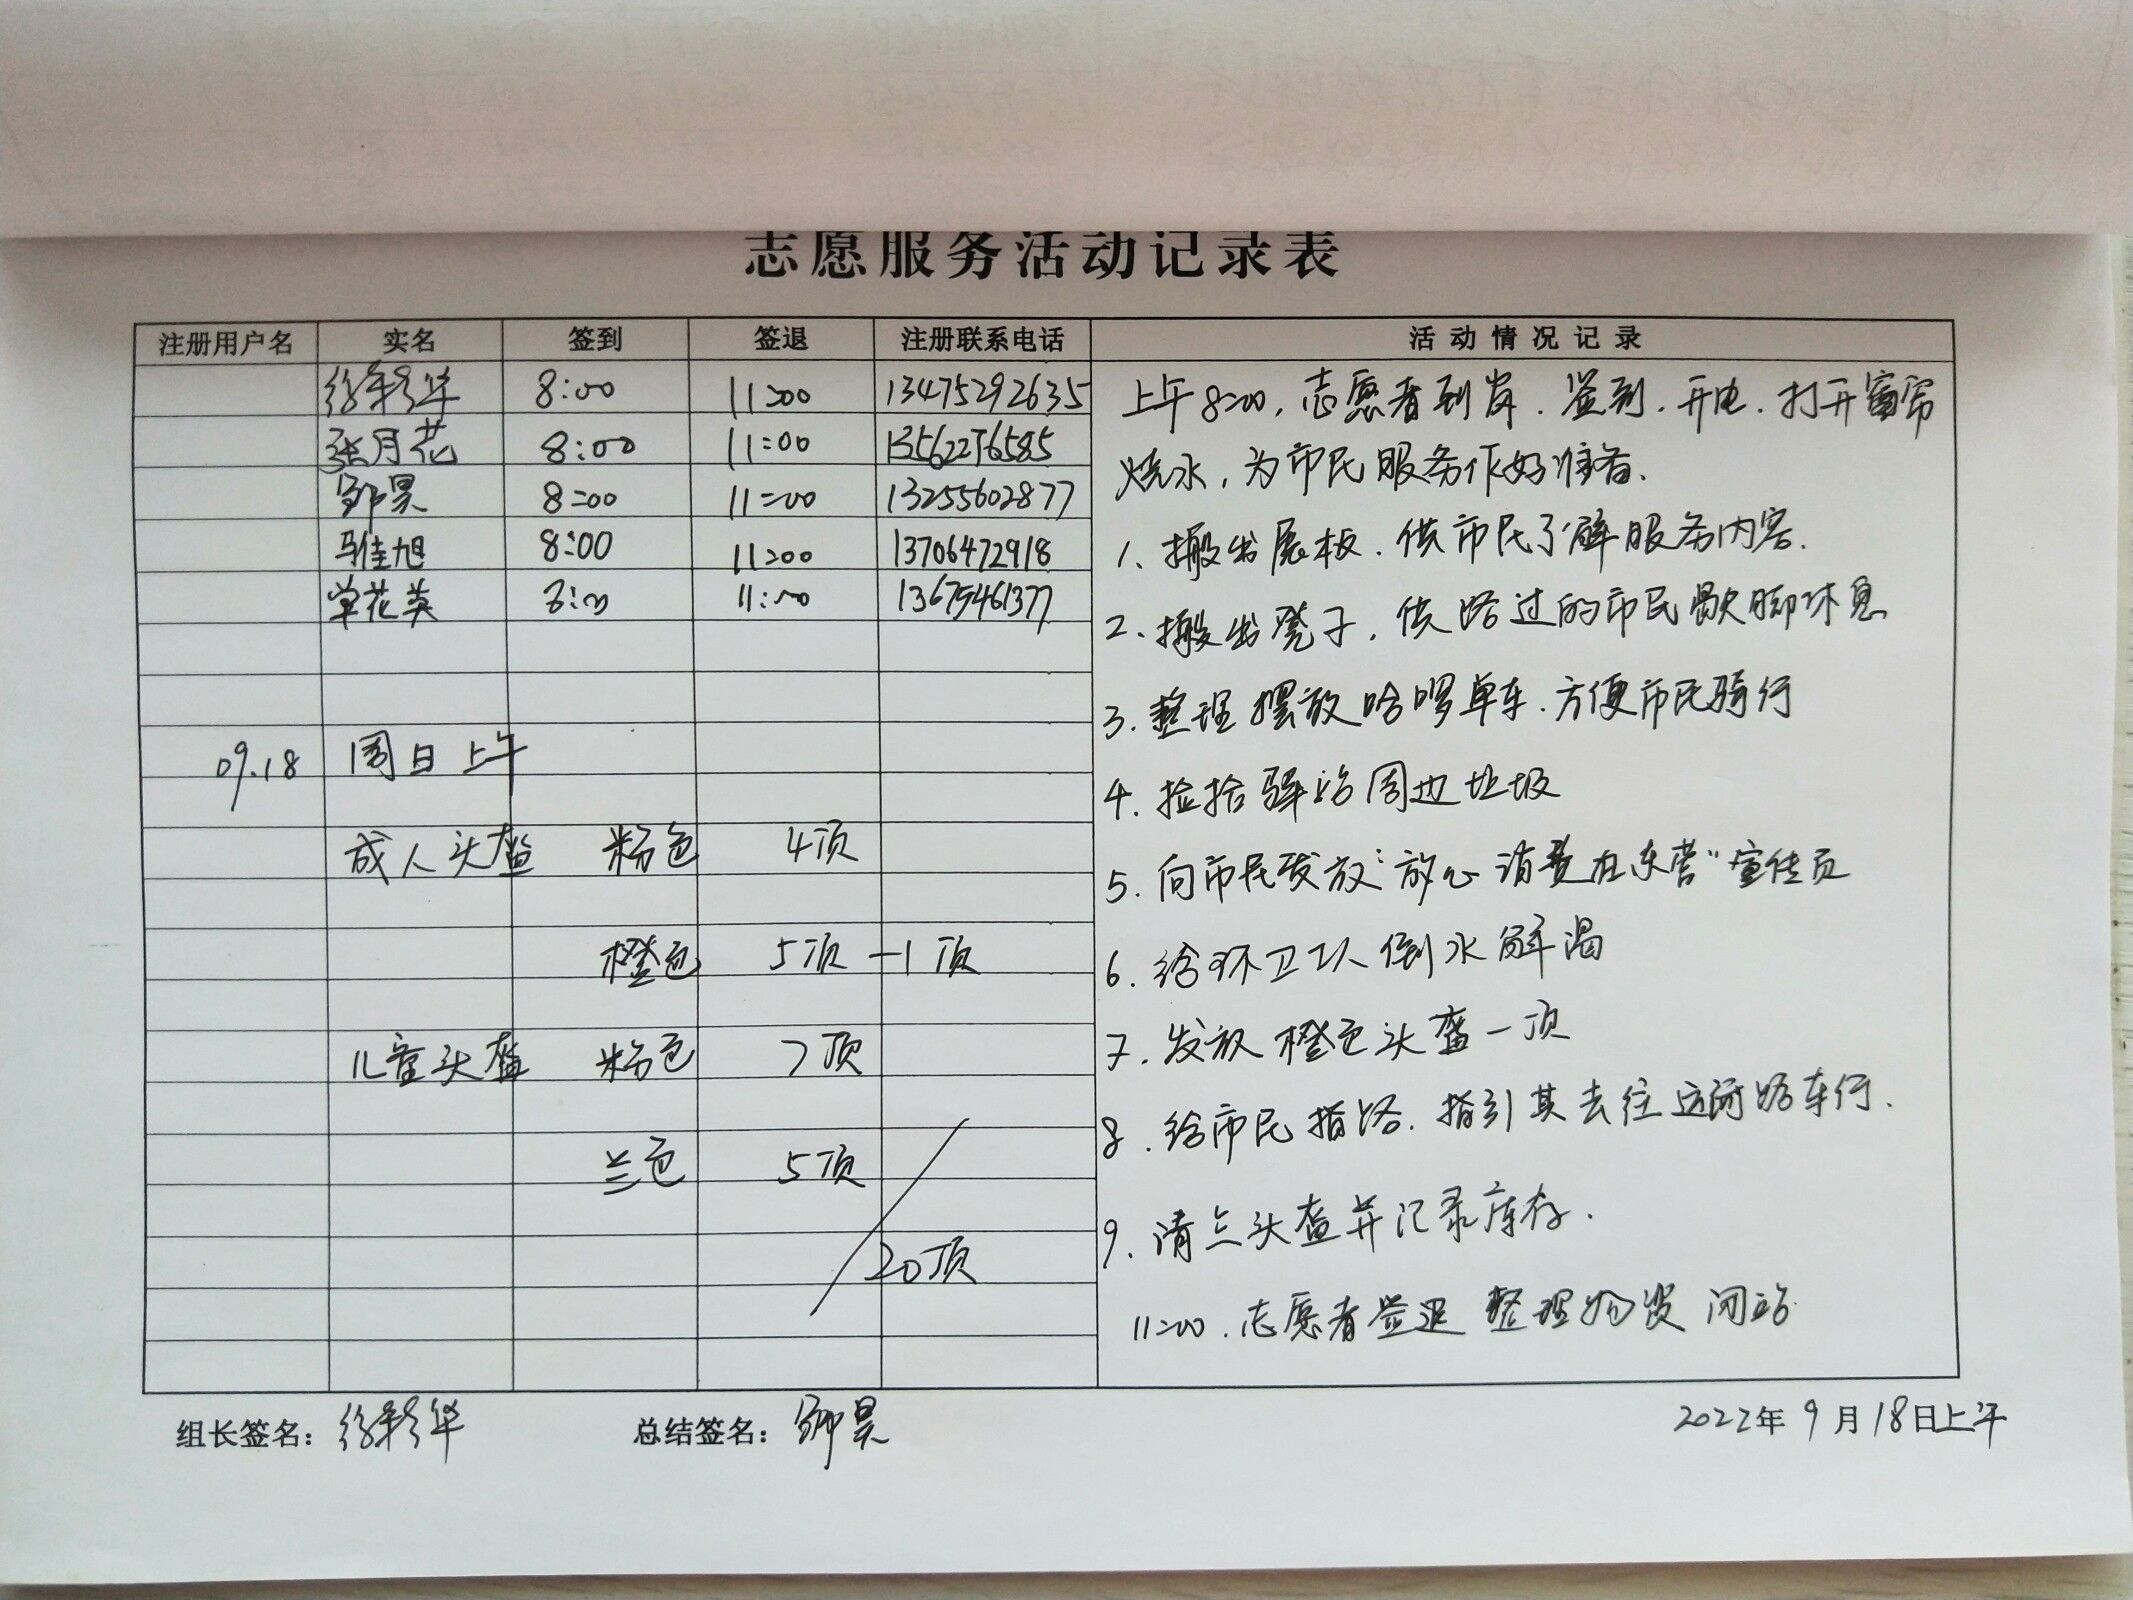 志愿服务活动记录表
注册用户名 实名 签到 签退 注册联系电话 活动情况记录
徐彩华 8:00 11:00 13475292635
张月花 8:00 11:00 13562276585
邹昊 8:00 11:00 13255602877
马佳旭 8:00 11:00 13706472918
单花英 8:00 11:00 13675461377
09.18 周日上午
成人头盔 粉色 4顶
橙色 5顶-1顶
儿童头盔 粉色 7顶
兰色 5顶
20顶
上午8:00,志愿者到岗.签到.开电.打开窗帘
烧水,为市民服务作好准备.
1、搬出展板.供市民了解服务内容.
2、搬出凳子,供路过的市民歇脚休息
3.整理摆放哈啰单车.方便市民骑行
4.捡拾驿站周边垃圾
5.向市民发放“放心消费在东营”宣传页
6.给环卫工人倒水解渴
7.发放橙色头盔一顶
8.给市民指路.指引其去往 路车行.
9.清点头盔并记录库存.
11:00.志愿者签退 整理物资 闭站
组长签名:徐彩华 总结签名:邹昊 2022年9月18日上午